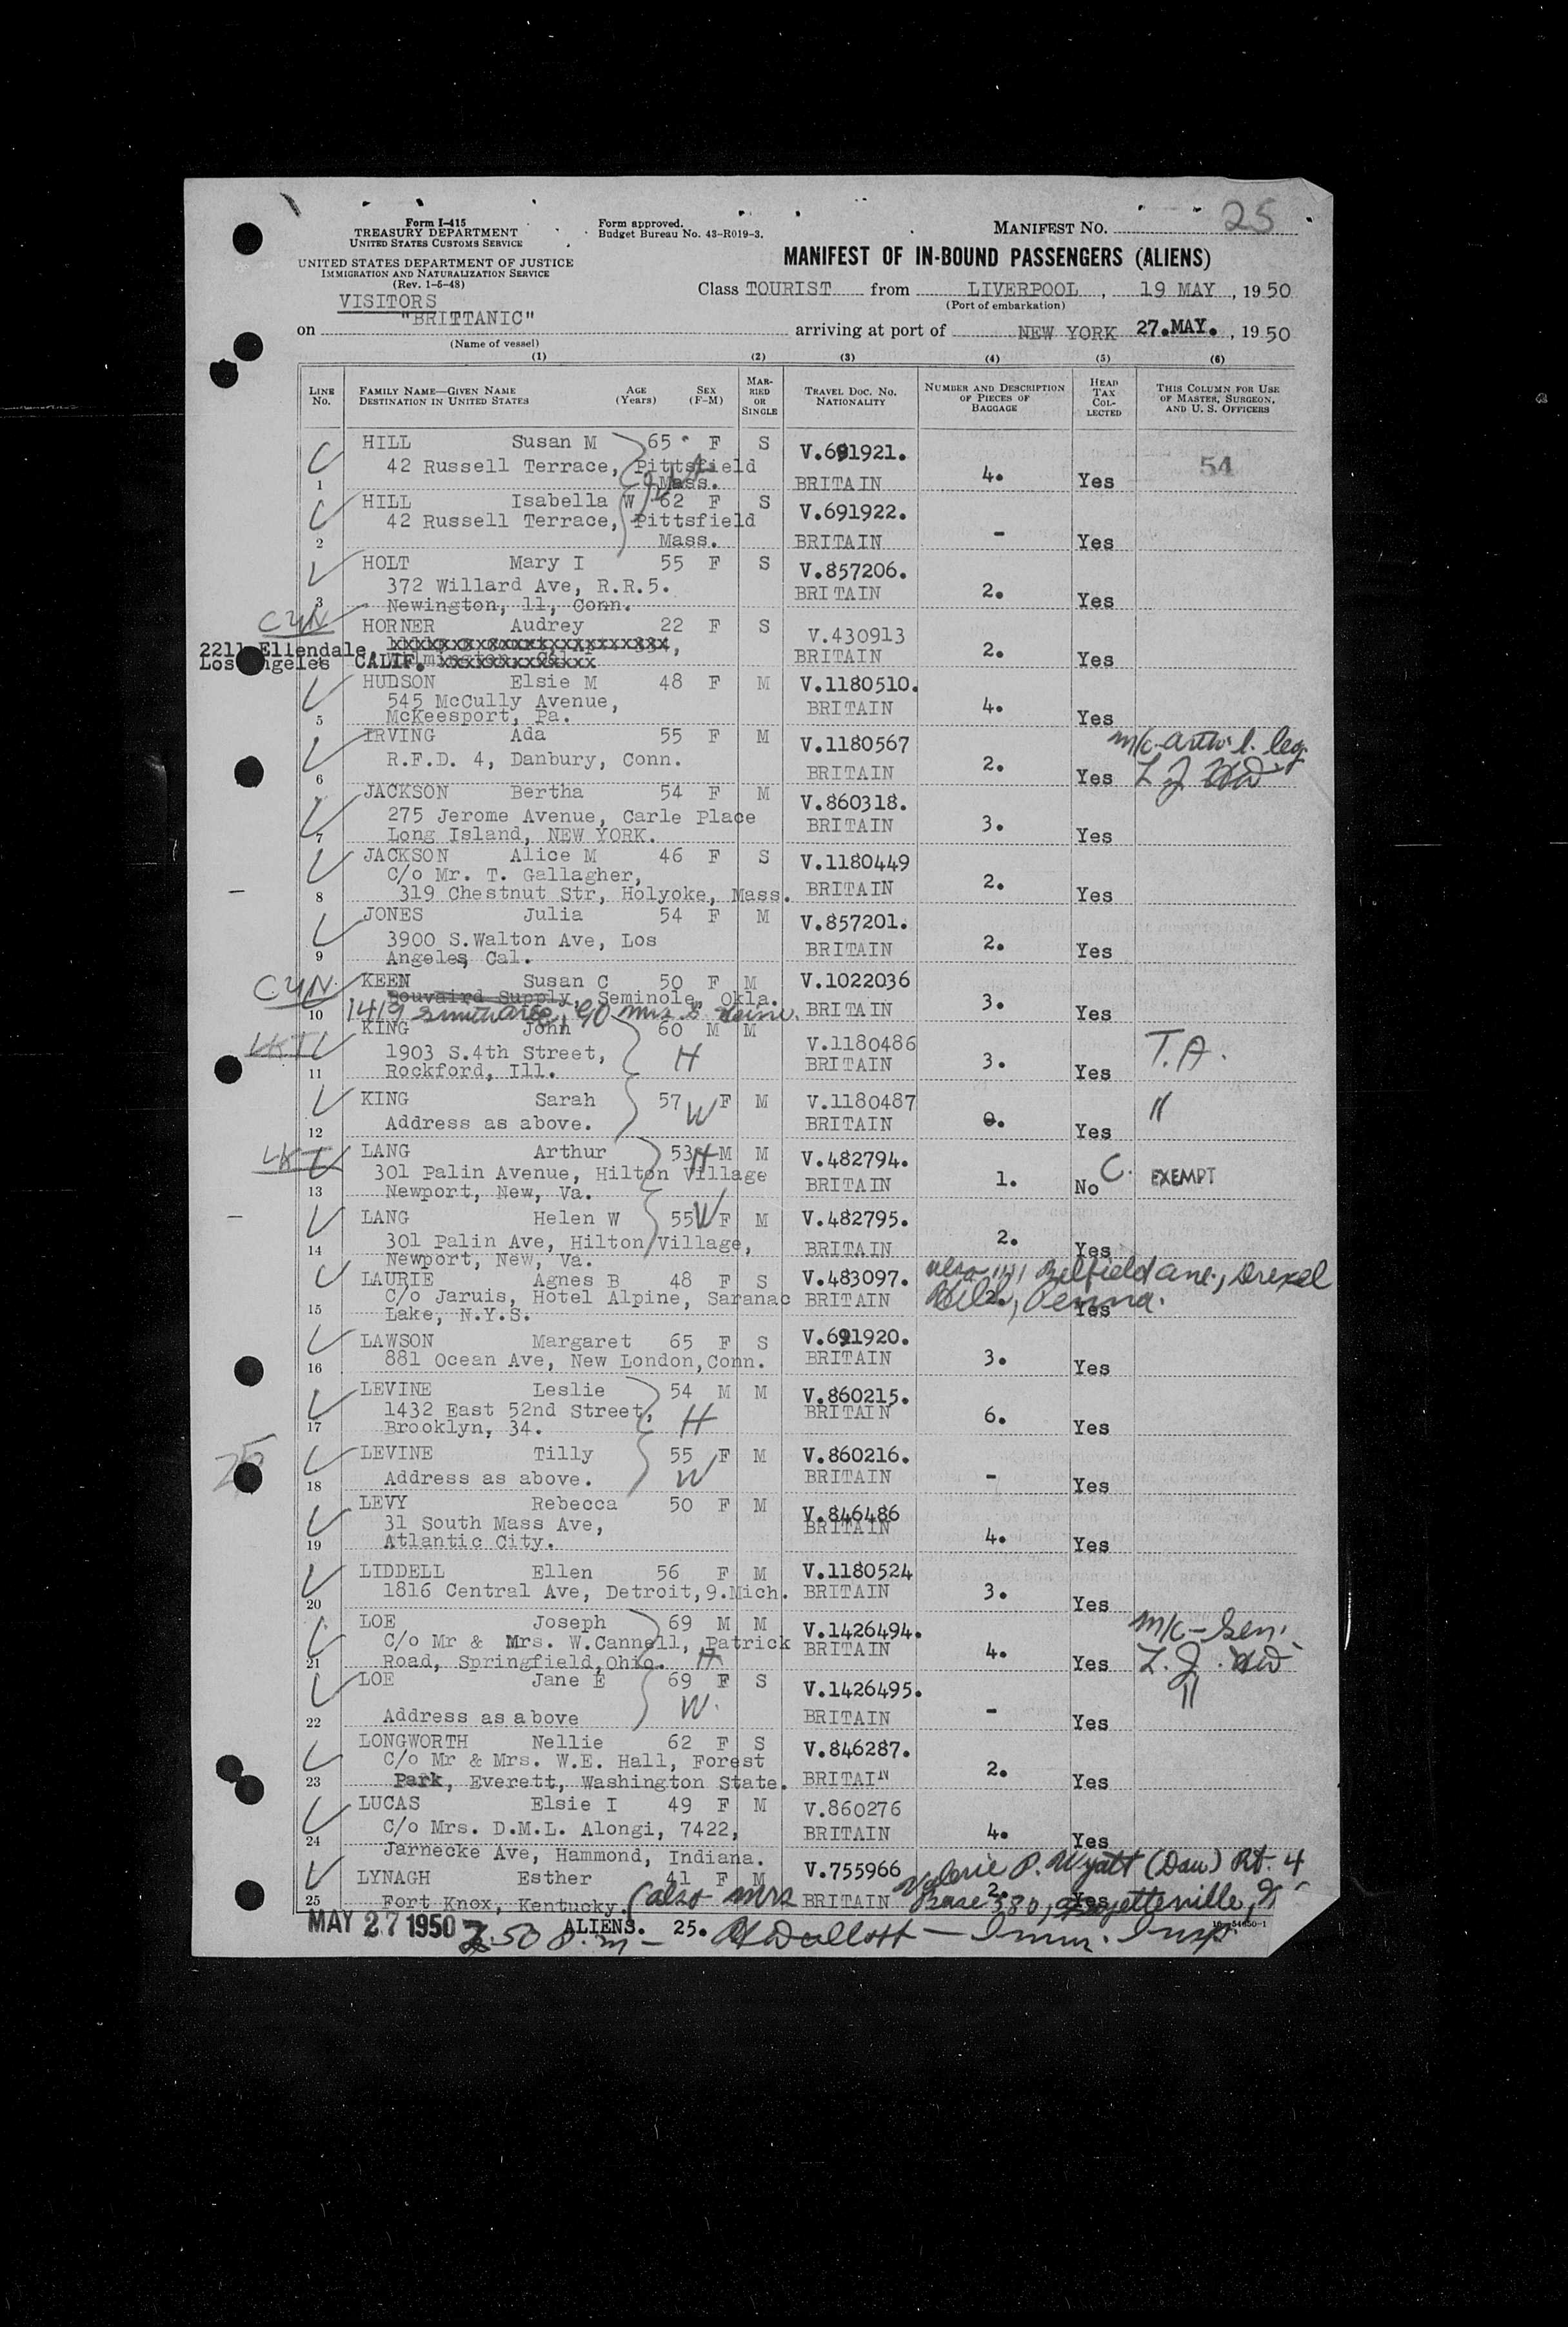 Form I-415
TREASURY DEPARTMENT
UNITED STATES CUSTOMS SERVICE
UNITED STATES DEPARTMENT OF JUSTICE
IMMIGRATION AND NATURALIZATION SERVICE
(Rev. 1-5-48)
Form approved.
Budget Bureau No. 43-R019-3.
MANIFEST NO. 25
MANIFEST OF IN-BOUND PASSENGERS (ALIENS)
Class TOURIST from LIVERPOOL, 19 MAY, 1950
(Port of embarkation)
VISITORS
on "BRITTANIC" arriving at port of NEW YORK 27.MAY., 1950
(Name of vessel)
(1) (2) (3) (4) (5) (6)
LINE NO. FAMILY NAME—GIVEN NAME DESTINATION IN UNITED STATES AGE (Years) SEX (F-M) MARRIED OR SINGLE TRAVEL DOC. NO. NATIONALITY NUMBER AND DESCRIPTION OF PIECES OF BAGGAGE HEAD TAX COLLECTED THIS COLUMN FOR USE OF MASTER, SURGEON, AND U. S. OFFICERS
HILL Susan M 65 F S V.691921.
42 Russell Terrace, Pittsfield 54
1 Mass. BRITAIN 4. Yes
HILL Isabella W 62 F S V.691922.
42 Russell Terrace, Pittsfield
2 Mass. BRITAIN - Yes
HOLT Mary I 55 F S V.857206.
372 Willard Ave, R.R.5. BRITAIN 2.
3 Newington, 11, Conn. Yes
HORNER Audrey 22 F S V.430913
2211 Ellendale
Los Angeles CALIF. BRITAIN 2. Yes
HUDSON Elsie M 48 F M V.1180510.
545 McCully Avenue, BRITAIN 4.
5 McKeesport, Pa. Yes
IRVING Ada 55 F M V.1180567
R.F.D. 4, Danbury, Conn.
6 BRITAIN 2. Yes
JACKSON Bertha 54 F M V.860318.
275 Jerome Avenue, Carle Place BRITAIN 3.
7 Long Island, NEW YORK. Yes
JACKSON Alice M 46 F S V.1180449
C/o Mr. T. Gallagher,
8 319 Chestnut Str, Holyoke, Mass. BRITAIN 2. Yes
JONES Julia 54 F M V.857201.
3900 S.Walton Ave, Los BRITAIN 2.
9 Angeles, Cal. Yes
KEEN Susan C 50 F M V.1022036
Bouvaird Supply, Seminole, Okla. BRITAIN 3.
10 1419 Yes
KING John 60 M M V.1180486
1903 S.4th Street, H BRITAIN 3. T.A.
11 Rockford, Ill. Yes
KING Sarah 57 W F M V.1180487 "
12 Address as above. BRITAIN 0. Yes
LANG Arthur 53 H M M V.482794.
301 Palin Avenue, Hilton Village BRITAIN 1. C. EXEMPT
13 Newport, New, Va. No
LANG Helen W 55 W F M V.482795.
301 Palin Ave, Hilton Village, BRITAIN 2.
14 Newport, New, Va. Yes
LAURIE Agnes B 48 F S V.483097. also Belfield ane., Drexel
C/o Jaruis, Hotel Alpine, Saranac BRITAIN 2. Hill, Penna.
15 Lake, N.Y.S. Yes
LAWSON Margaret 65 F S V.691920.
16 881 Ocean Ave, New London,Conn. BRITAIN 3. Yes
LEVINE Leslie 54 M M V.860215.
1432 East 52nd Street, H BRITAIN 6.
17 Brooklyn, 34. Yes
LEVINE Tilly 55 F M V.860216.
18 Address as above. W BRITAIN - Yes
LEVY Rebecca 50 F M V.846486
31 South Mass Ave, BRITAIN 4.
19 Atlantic City. Yes
LIDDELL Ellen 56 F M V.1180524
20 1816 Central Ave, Detroit,9.Mich. BRITAIN 3. Yes
LOE Joseph 69 M M V.1426494. m/c-Sen.
C/o Mr & Mrs. W.Cannell, Patrick BRITAIN 4.
21 Road, Springfield,Ohio. H Yes
LOE Jane E 69 F S V.1426495. "
22 Address as above W. BRITAIN - Yes
LONGWORTH Nellie 62 F S V.846287.
C/o Mr & Mrs. W.E. Hall, Forest 2.
23 Park, Everett, Washington State. BRITAIN Yes
LUCAS Elsie I 49 F M V.860276
C/o Mrs. D.M.L. Alongi, 7422, BRITAIN 4.
24 Jarnecke Ave, Hammond, Indiana. Yes
LYNAGH Esther 41 F M V.755966 Valerie P. Wyatt (Dau) Rt. 4
25 Fort Knox, Kentucky. (also Mrs BRITAIN 2. Yes Base 380, Fayetteville,
MAY 27 1950 2.50 p.m - ALIENS. 25. — Imm. Insp.